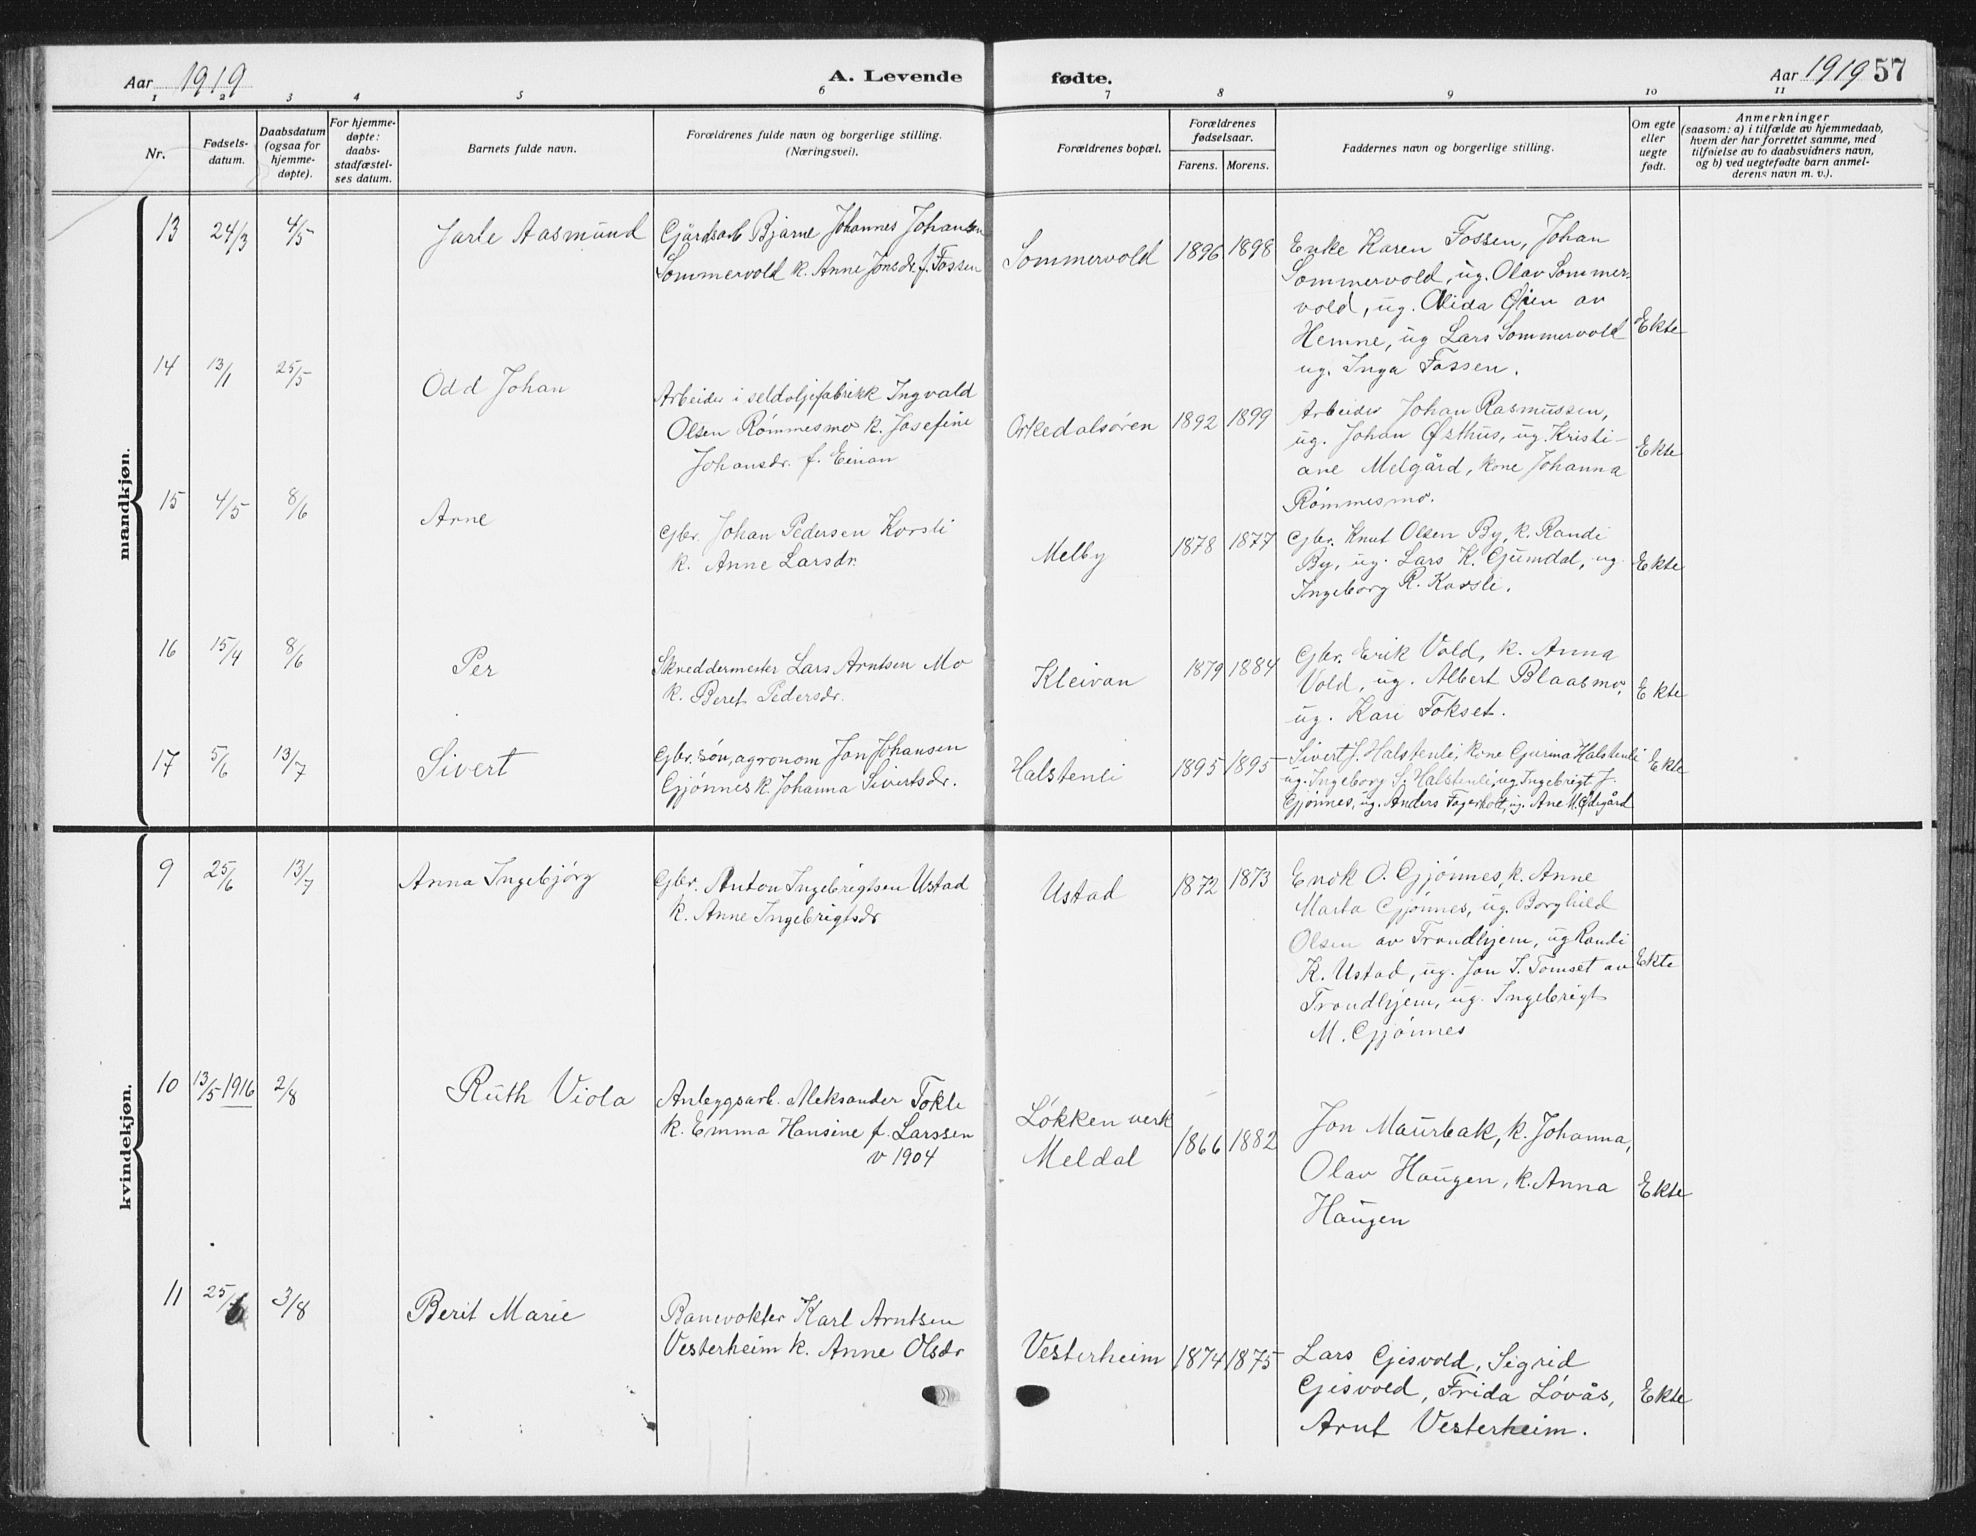 Aar 1919
A. Levende fødte.
Aar 1919 57
1 2 3 4 5 6 7 8 9 10 11
Nr.
Fødsels-
datum.
Daabsdatum
(ogsaa for
hjemme-
døpte).
For hjemme-
døpte:
daabs-
stadfæstel-
ses datum.
Barnets fulde navn.
Forældrenes fulde navn og borgerlige stilling.
(Næringsvei).
Forældrenes bopæl.
Forældrenes
fødselsaar.
Farens. Morens.
Faddernes navn og borgerlige stilling.
Om egte
eller
uegte
født.
Anmerkninger
(saasom: a) i tilfælde av hjemmedaab,
hvem der har forrettet samme, med
tilføielse av to daabsvidners navn,
og b) ved uegtefødte barn anmel-
derens navn m. v.).
mandkjøn.
13 24/3 4/5 Jarle Aasmund
Gjårdsarb Bjarne Johannes Johansen
Sommervold k. Anne Jonsdr. f. Fossen
Sommervold 1896 1898
Enke Karen Fossen, Johan
Sommervold, ug. Olav Sommer-
vold, ug. Alida Øien av
Hemne, ug Lars Sommervold
ug. Inga Fossen.
Ekte
14 13/1 25/5 Odd Johan
Arbeider i sildoljefabrikk Ingvald
Olsen Rømmesmo k. Josefine
Johansdr. f. Einan
Orkedalsøren 1892 1899
Arbeider Johan Rasmussen,
ug. Johan Østhus, ug. Kristi-
ane Melgård, kone Johanna
Rømmesmo.
Ekte
15 4/5 8/6 Arne
Gbr. Johan Pedersen Korsli
k. Anne Larsdr.
Melby 1878 1877
Gbr. Knut Olsen By, k. Randi
By, ug. Lars K. Gjumdal, ug.
Ingeborg R. Korsli.
Ekte
16 15/4 8/6 Per
Skreddermester Lars Arntsen Mo
k. Beret Pedersdr.
Kleivan 1879 1884
Gbr. Erik Vold, k. Anna
Vold, ug. Albert Blaasmo,
ug. Kari Fokset.
Ekte
17 5/6 13/7 Sivert
Gbr. søn, agronom Jon Johansen
Gjønnes k. Johanna Sivertsdr.
Halstenli 1895 1895
Sivert J. Halstenli, kone Gjurina Halstenli
ug. Ingeborg S. Halstenli, ug Ingebrigt J.
Gjønnes, ug. Anders Fagerholt, ug. Ane M. Ødegård
Ekte
kvindekjøn.
9 25/6 13/7 Anna Ingebjørg
Gbr. Anton Ingebrigtsen Ustad
k. Anne Ingebrigtsdr
Ustad 1872 1873
Enok O. Gjønnes, k. Anne
Marta Gjønnes, ug. Borghild
Olsen av Trondhjem, ug Randi
K. Ustad, ug. Jon J. Tomset av
Trondhjem, ug. Ingebrigt
M. Gjønnes
Ekte
10 13/5 1916 2/8 Ruth Viola
Anleggsarb. Aleksander Tokle
k. Emma Hansine f. Larssen
v 1904
Løkken verk
Meldal
1866 1882
Jon Maurbak, k. Johanna,
Olav Haugen, k. Anna
Haugen
Ekte
11 25/6 3/8 Berit Marie
Banevokter Karl Arntsen
Vesterheim k. Anne Olsdr
Vesterheim 1874 1875
Lars Gjisvold, Sigrid
Gjisvold, Frida Løvås,
Arnt Vesterheim.
Ekte